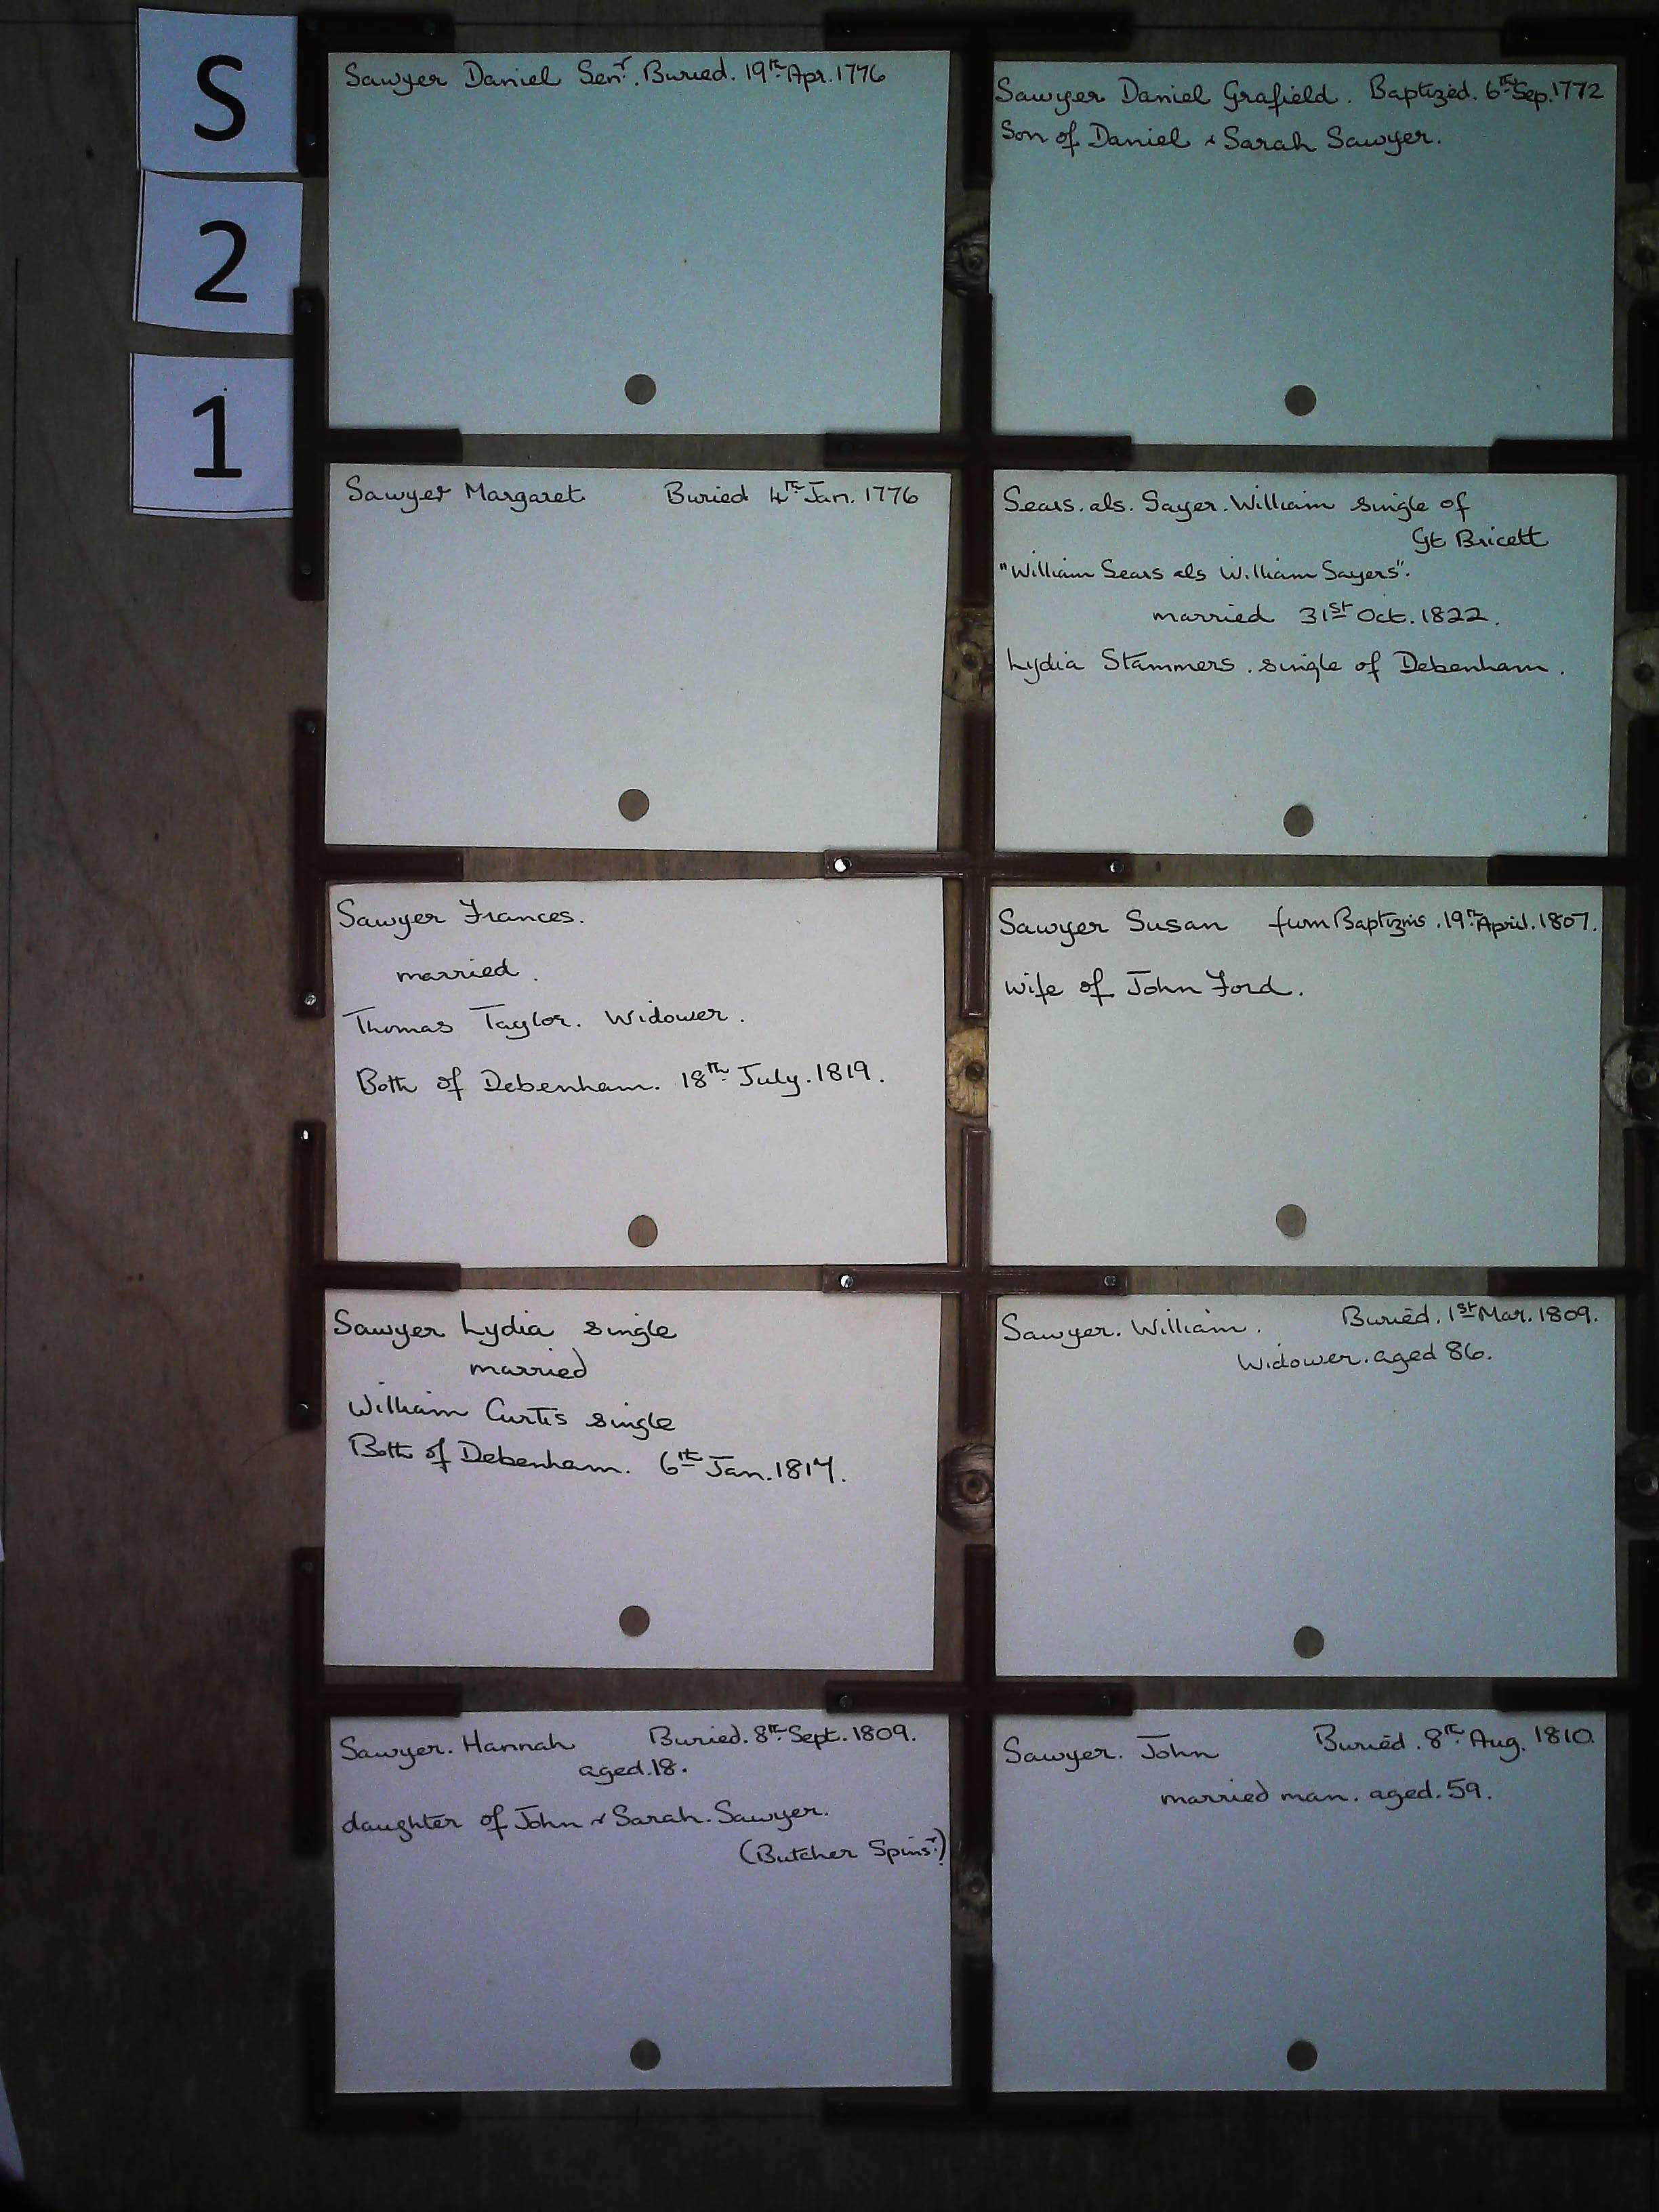 S
2
1
Sawyer Daniel Senr. Buried. 19th Apr. 1776
Sawyer Daniel Grafield. Baptized. 6th Sep. 1772
Son of Daniel & Sarah Sawyer.
Sawyer Margaret Buried 4th Jan. 1776
Sears. als. Sayer. William single of
Gt Bricett
"William Sears als William Sayers".
married 31st Oct. 1822.
Lydia Stammers. single of Debenham.
Sawyer Frances.
married.
Thomas Taylor. Widower.
Both of Debenham. 18th July. 1819.
Sawyer Susan from Baptizms. 19th April. 1807.
wife of John Ford.
Sawyer Lydia single
married
William Curtis single
Both of Debenham. 6th Jan.
Sawyer. William. Buried. 1st Mar. 1809.
Widower. aged 86.
Sawyer. Hannah Buried. 8th Sept. 1809.
aged. 18.
daughter of John & Sarah. Sawyer.
(Butcher Spinsr.)
Sawyer. John Buried. 8th Aug. 1810.
married man. aged. 59.